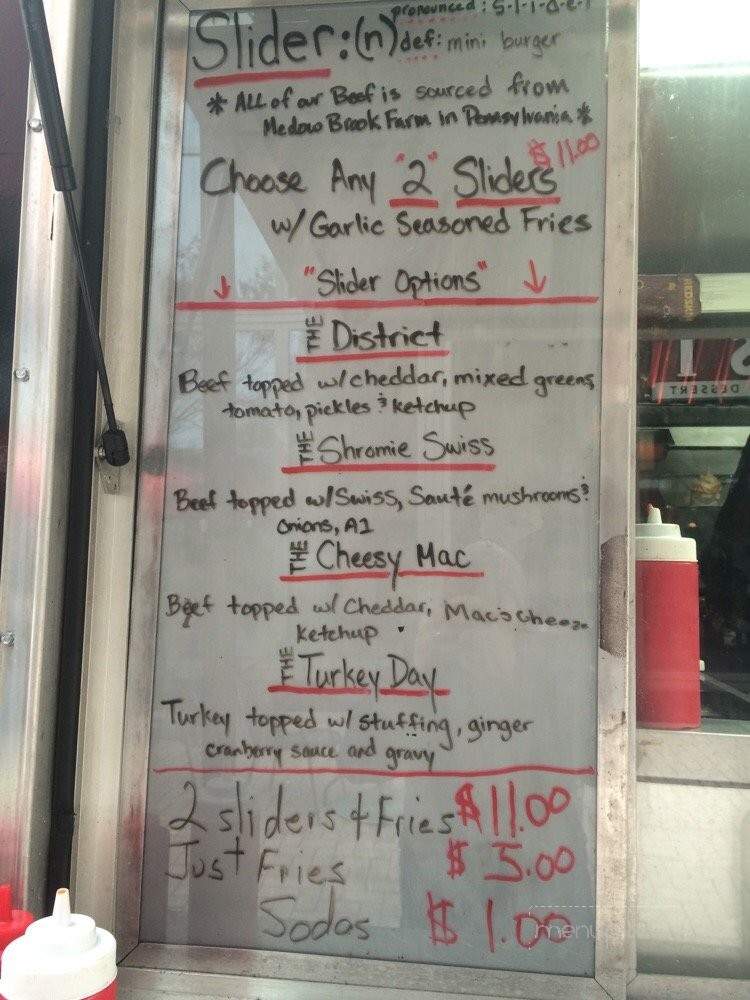 pronounced: S-l-i-d-e-r
Slider:(n) def: mini burger
* ALL of our Beef is sourced from
Medow Brook Farm in Pennsylvania *
$11.00
Choose Any "2" Sliders
w/ Garlic Seasoned Fries
"Slider Options"
THE District
Beef topped w/cheddar, mixed greens,
tomato, pickles & ketchup
THE Shromie Swiss
Beef topped w/Swiss, Sauté mushrooms &
onions, A1
THE Cheesy Mac
Beef topped w/ Cheddar, Mac & Cheeze
ketchup
THE Turkey Day
Turkey topped w/ stuffing, ginger
cranberry sauce and gravy
2 sliders & Fries $11.00
Just Fries $5.00
Sodas $1.00
DESSERT
menu